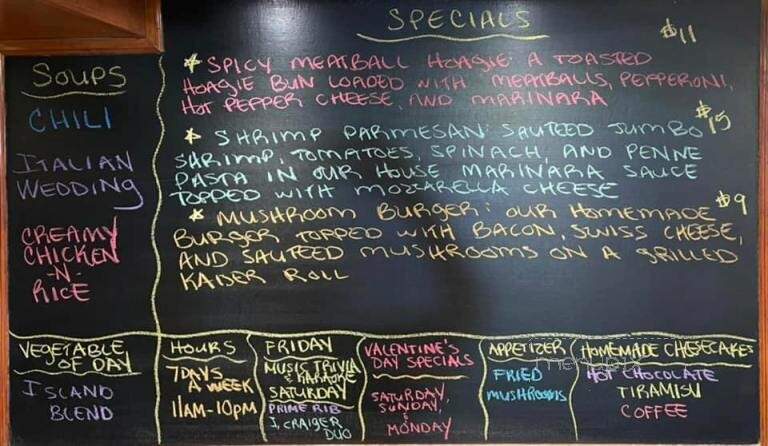 SOUPS
CHILI
ITALIAN
WEDDING
CREAMY
CHICKEN
-N-
RICE
SPECIALS
* SPICY MEATBALL HOAGIE: A TOASTED $11
HOAGIE BUN LOADED WITH MEATBALLS, PEPPERONI,
HOT PEPPER CHEESE, AND MARINARA
* SHRIMP PARMESAN: SAUTEED JUMBO $15
SHRIMP, TOMATOES, SPINACH, AND PENNE
PASTA IN OUR HOUSE MARINARA SAUCE
TOPPED WITH MOZZARELLA CHEESE
* MUSHROOM BURGER: OUR HOMEMADE $9
BURGER TOPPED WITH BACON, SWISS CHEESE,
AND SAUTEED MUSHROOMS ON A GRILLED
KAISER ROLL
VEGETABLE
OF DAY
ISLAND
BLEND
HOURS
7 DAYS
A WEEK
11AM-10PM
FRIDAY
MUSIC TRIVIA
& KARAOKE
SATURDAY
PRIME RIB
J. CRAIGER
DUO
VALENTINE'S
DAY SPECIALS
SATURDAY,
SUNDAY,
MONDAY
APPETIZER
FRIED
MUSHROOMS
HOMEMADE CHEESECAKES
HOT CHOCOLATE
TIRAMISU
COFFEE